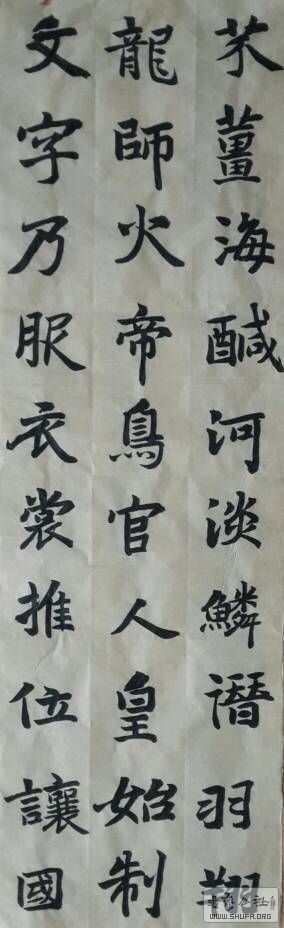 芥薑海鹹河淡鱗潛羽翔
龍師火帝鳥官人皇始制
文字乃服衣裳推位讓國
WWW.SHUFA.ORG